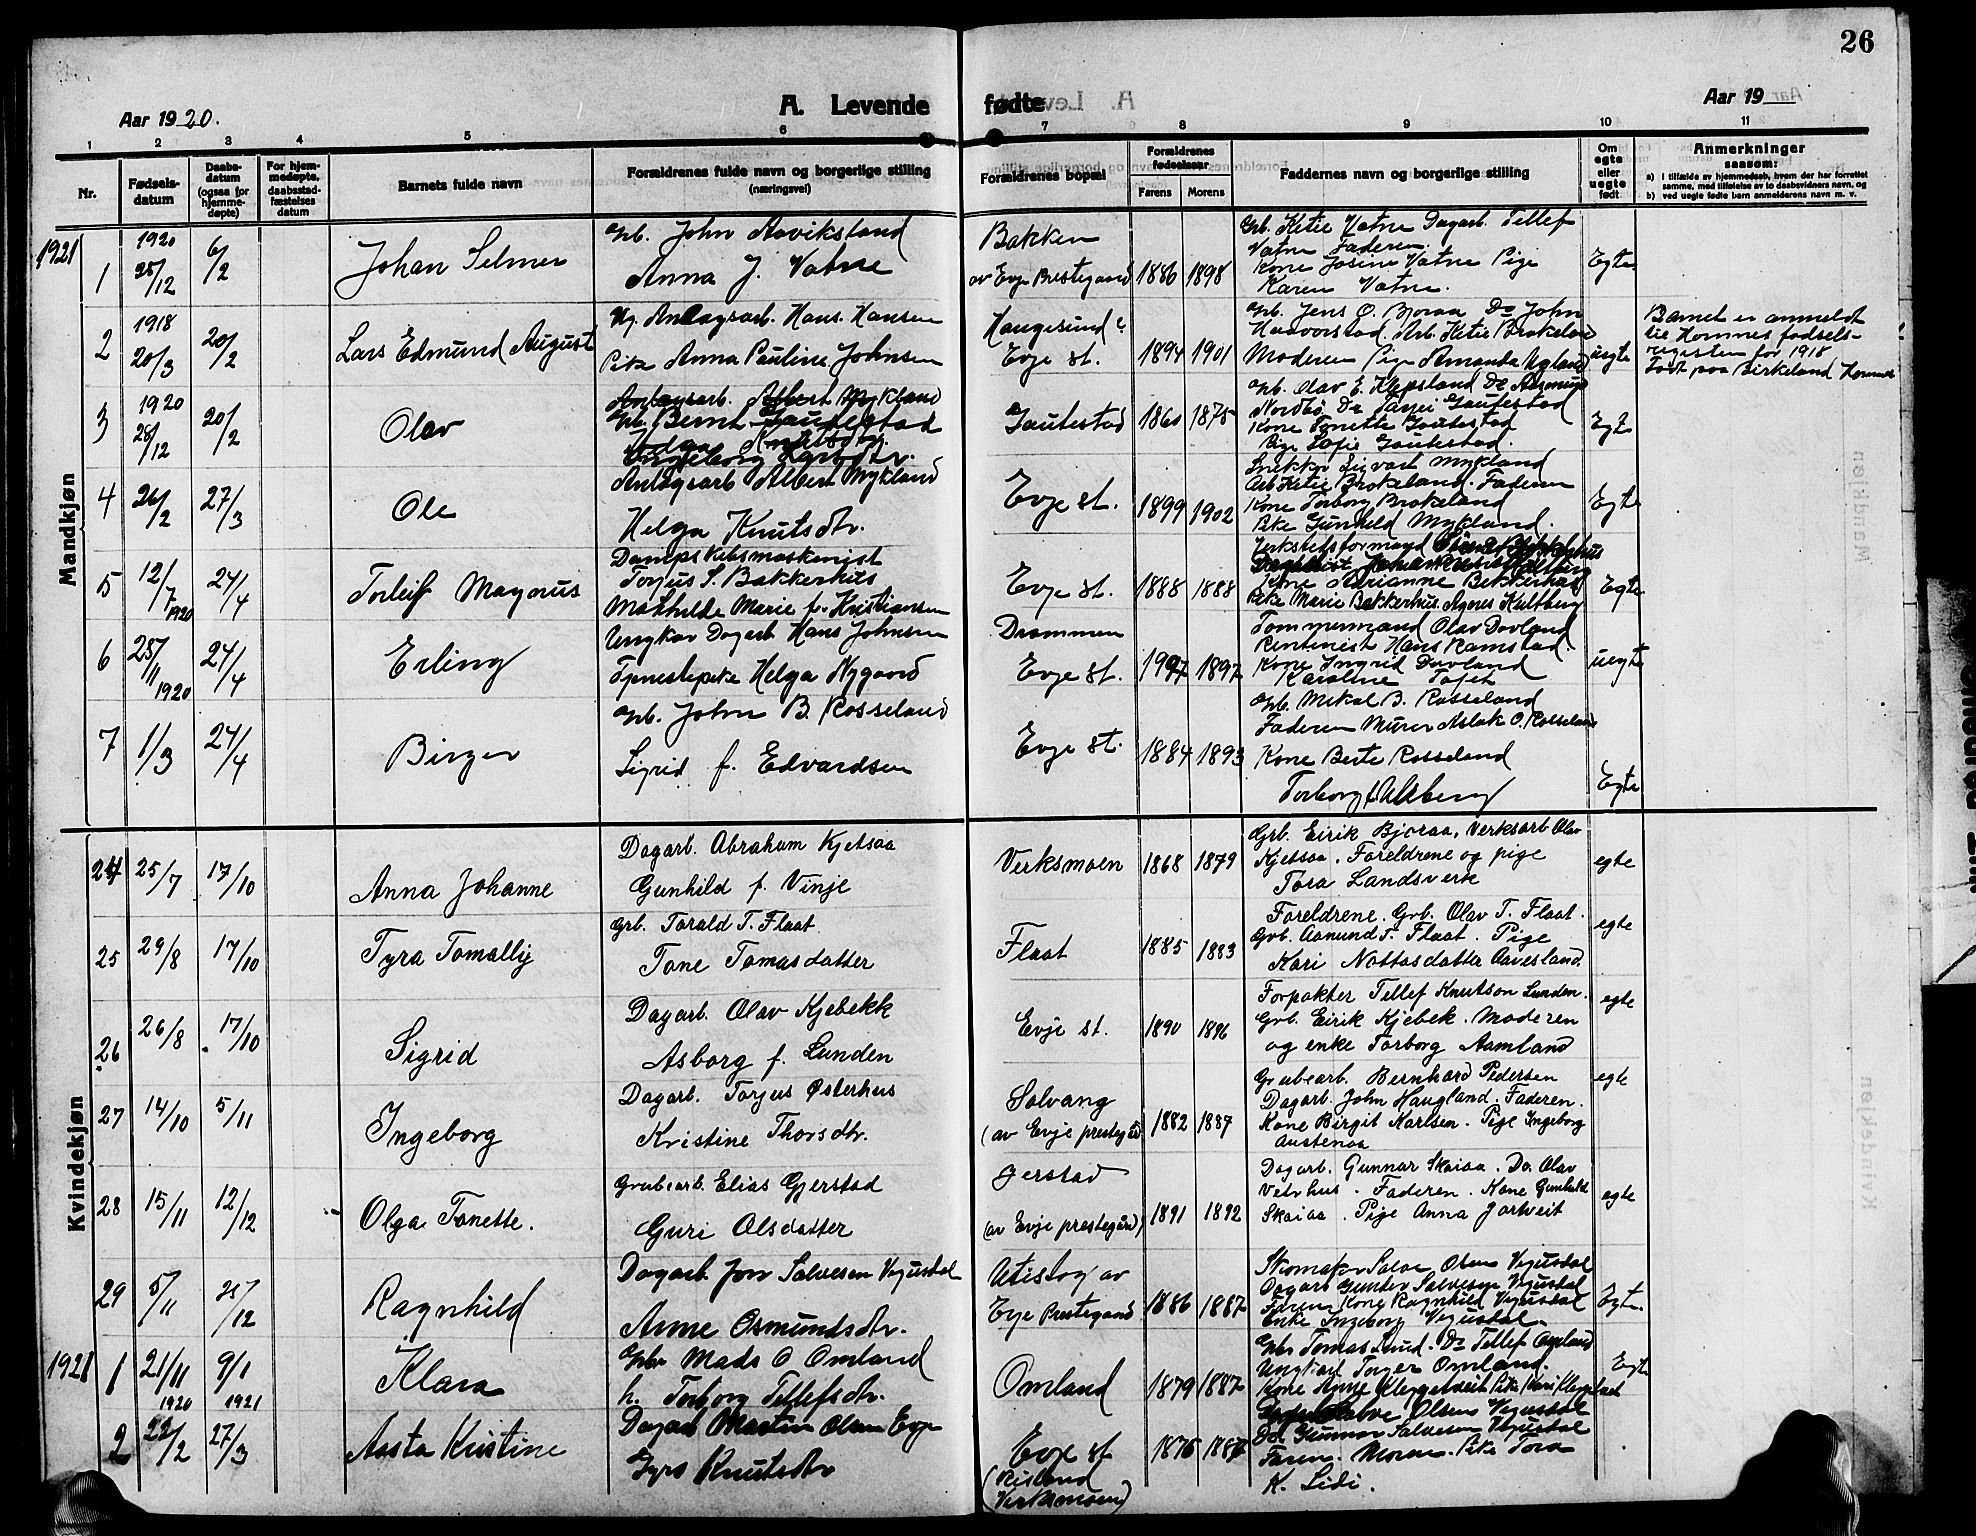 26
A. Levende fødte
Aar 1920.
Aar 19
1 2 3 4 5 6 7 8 9 10 11
Nr.
Fødsels-datum
Daabs-datum (ogsaa for hjemme-døpte)
For hjem-medøpte, daabsstad-fæstelses datum
Barnets fulde navn
Forældrenes fulde navn og borgerlige stilling (næringsvei)
Forældrenes bopæl
Forældrenes fødselsaar
Farens
Morens
Faddernes navn og borgerlige stilling
Om egte eller uegte født
Anmerkninger
saasom:
a) I tilfælde av hjemmedaab, hvem der har forrettet samme, med tilføielse av to daabsvidners navn, og
b) ved uegte fødte barn anmelderens navn m. v.
Mandkjøn
1921
1 1920 25/12 6/2 Johan Selmer
Grb. John Aavikstand
Anna J. Vatne
Bakken
av Evje Prestegaard 1886 1898
Grb. Ketie Vatne Dagarb. Tellef
Vatne Faderen.
Kone Josine Vatne Pige
Karen Vatne.
Egte
2 1918 20/3 20/2 Lars Edmund August
Anlagsarb. Hans Hansen
Pike Anna Pauline Johnsen
Haugesund
Evje st. 1894 1901
Grb. Jens O. Bjoraa Do John
Arb. Ketie Brokeland
Moderen Pige Amanda Ugland
uegte
Barnet er anmeldt
til Hornnes fødsels-
registeren for 1918
Født paa Birkeland Hornnes
3 1920 28/12 20/2 Olav
Anlagsarb. Albert Mykland
Grb. Bernt Gautestad
Helga Knutsdtr.
Ingeborg
Gautestad 1860 1875
Grb. Olav E. Klepsland Do Aasmund
Nordbø Do Tarjei Gautestad
Kone Tonette Gautestad
Pige Sofie Gautestad.
Egte
4 26/2 27/3 Ole
Anlagsarb Albert Mykland
Helga Knutsdtr.
Evje st. 1899 1902
Snekker Sigvart Mykland
Arb. Ketie Brokeland. Faderen
Kone Torborg Brokeland
Pike Gunhild Mykland.
Egte
5 12/7 1920 24/4 Torleif Magnus
Dampskibsmaskinist
Torjus S. Bakkerhus
Mathilde Marie f. Kristiansen
Evje st. 1888 1888
Verkstedsformand
Kone Adrianne Bekkerhus
Pike Marie Bakkerhus. Agnes Hultberg
Egte
6 28/11 1920 24/4 Erling
Ungkar Dagarb Hans Johnsen
Tjenestepike Helga Nygaard
Drammen
Evje st. 1897 1897
Tømmermand Olav Dovland
Rentenist Hans Ramstad.
Kone Ingrid Dovland
Karoline Tofte
uegte
7 1/3 24/4 Birger
Grb. John B. Rosseland
Sigrid f. Edvardsen
Evje st. 1884 1893
Grb. Mikal B. Rosseland
Faderen Murer Aslak O. Rosseland
Kone Berte Rosseland
Torborg
Egte
Kvindekjøn
24 25/7 17/10 Anna Johanne
Dagarb. Abraham Kjetsaa
Gunhild f. Vinje
Verksmoen 1868 1879
Grb. Eirik Bjoraa, Verksarb. Olav
Kjetsaa. Foreldrene og pige
Tora Landsverk
egte
25 29/8 17/10 Tyra Tomallig
Grb. Torald T. Flaat.
Tone Tomasdatter
Flaat 1885 1883
Foreldrene. Grb. Olav T. Flaat.
Grb. Aanund T. Flaat. Pige
Kari Nottosdatter Aavesland.
egte
26 26/8 17/10 Sigrid
Dagarb. Olav Kjebekk
Asborg f. Lunden
Evje st. 1890 1896
Forpakter Tellef Knutson Lunden.
Grb. Eirik Kjebek. Moderen
og enke Torborg Aamland
egte
27 14/10 5/11 Ingeborg
Dagarb. Torjus Østerhus
Kristine Thorsdtr.
Solvang
(av Evje prestegård) 1882 1887
Grubearb. Bernhard Pedersen
Dagarb. John Haugland. Faderen.
Kone Birgit Karlsen. Pige Ingeborg
Austenaa
egte
28 15/11 12/12 Olga Tonette.
Grubearb. Elias Gjerstad
Guri Olsdatter
Jerstad
(av Evje prestegård) 1891 1892
Dagarb. Gunnar Skaiaa. Do. Olav
Vetrhus. Faderen. Kone Gunhild
Skaiaa. Pige Anna Jortveit
egte
29 5/11 25/12 Ragnhild
Dagarb. Jon Salvesen Vegusdal
Anne Osmundsdtr.
Utistog av
Evje Prestegaard 1886 1887
Skomaker Salve Olsens Vegusdal
Dagarb Gunder Salvesen Vegusdal
Faren Kone Ragnhild Vegusdal
Enke Ingeborg Vegusdal.
Egte
1921
1 21/11 1920 9/1 1921 Klara
Gbr Mads O Omland
h. Torborg Tellefsdtr.
Omland 1879 1887
Gbr Tomas Lund. Do Tellef Omland
Ungkarl Torger Omland.
Kone Anne Kleggetveit Pike Kari
Egte
2 22/2 27/3 Aasta Kristine
Dagarb Martin Olsen Evje
Gyro Knutsdtr
Evje st
(Risland
Verksmoen) 1876 1887
Salve Olsens Vegusdal
Do. Gunnar Salvesen Vegusdal
Faren. Moren. Pike Tora
K. Lidi.